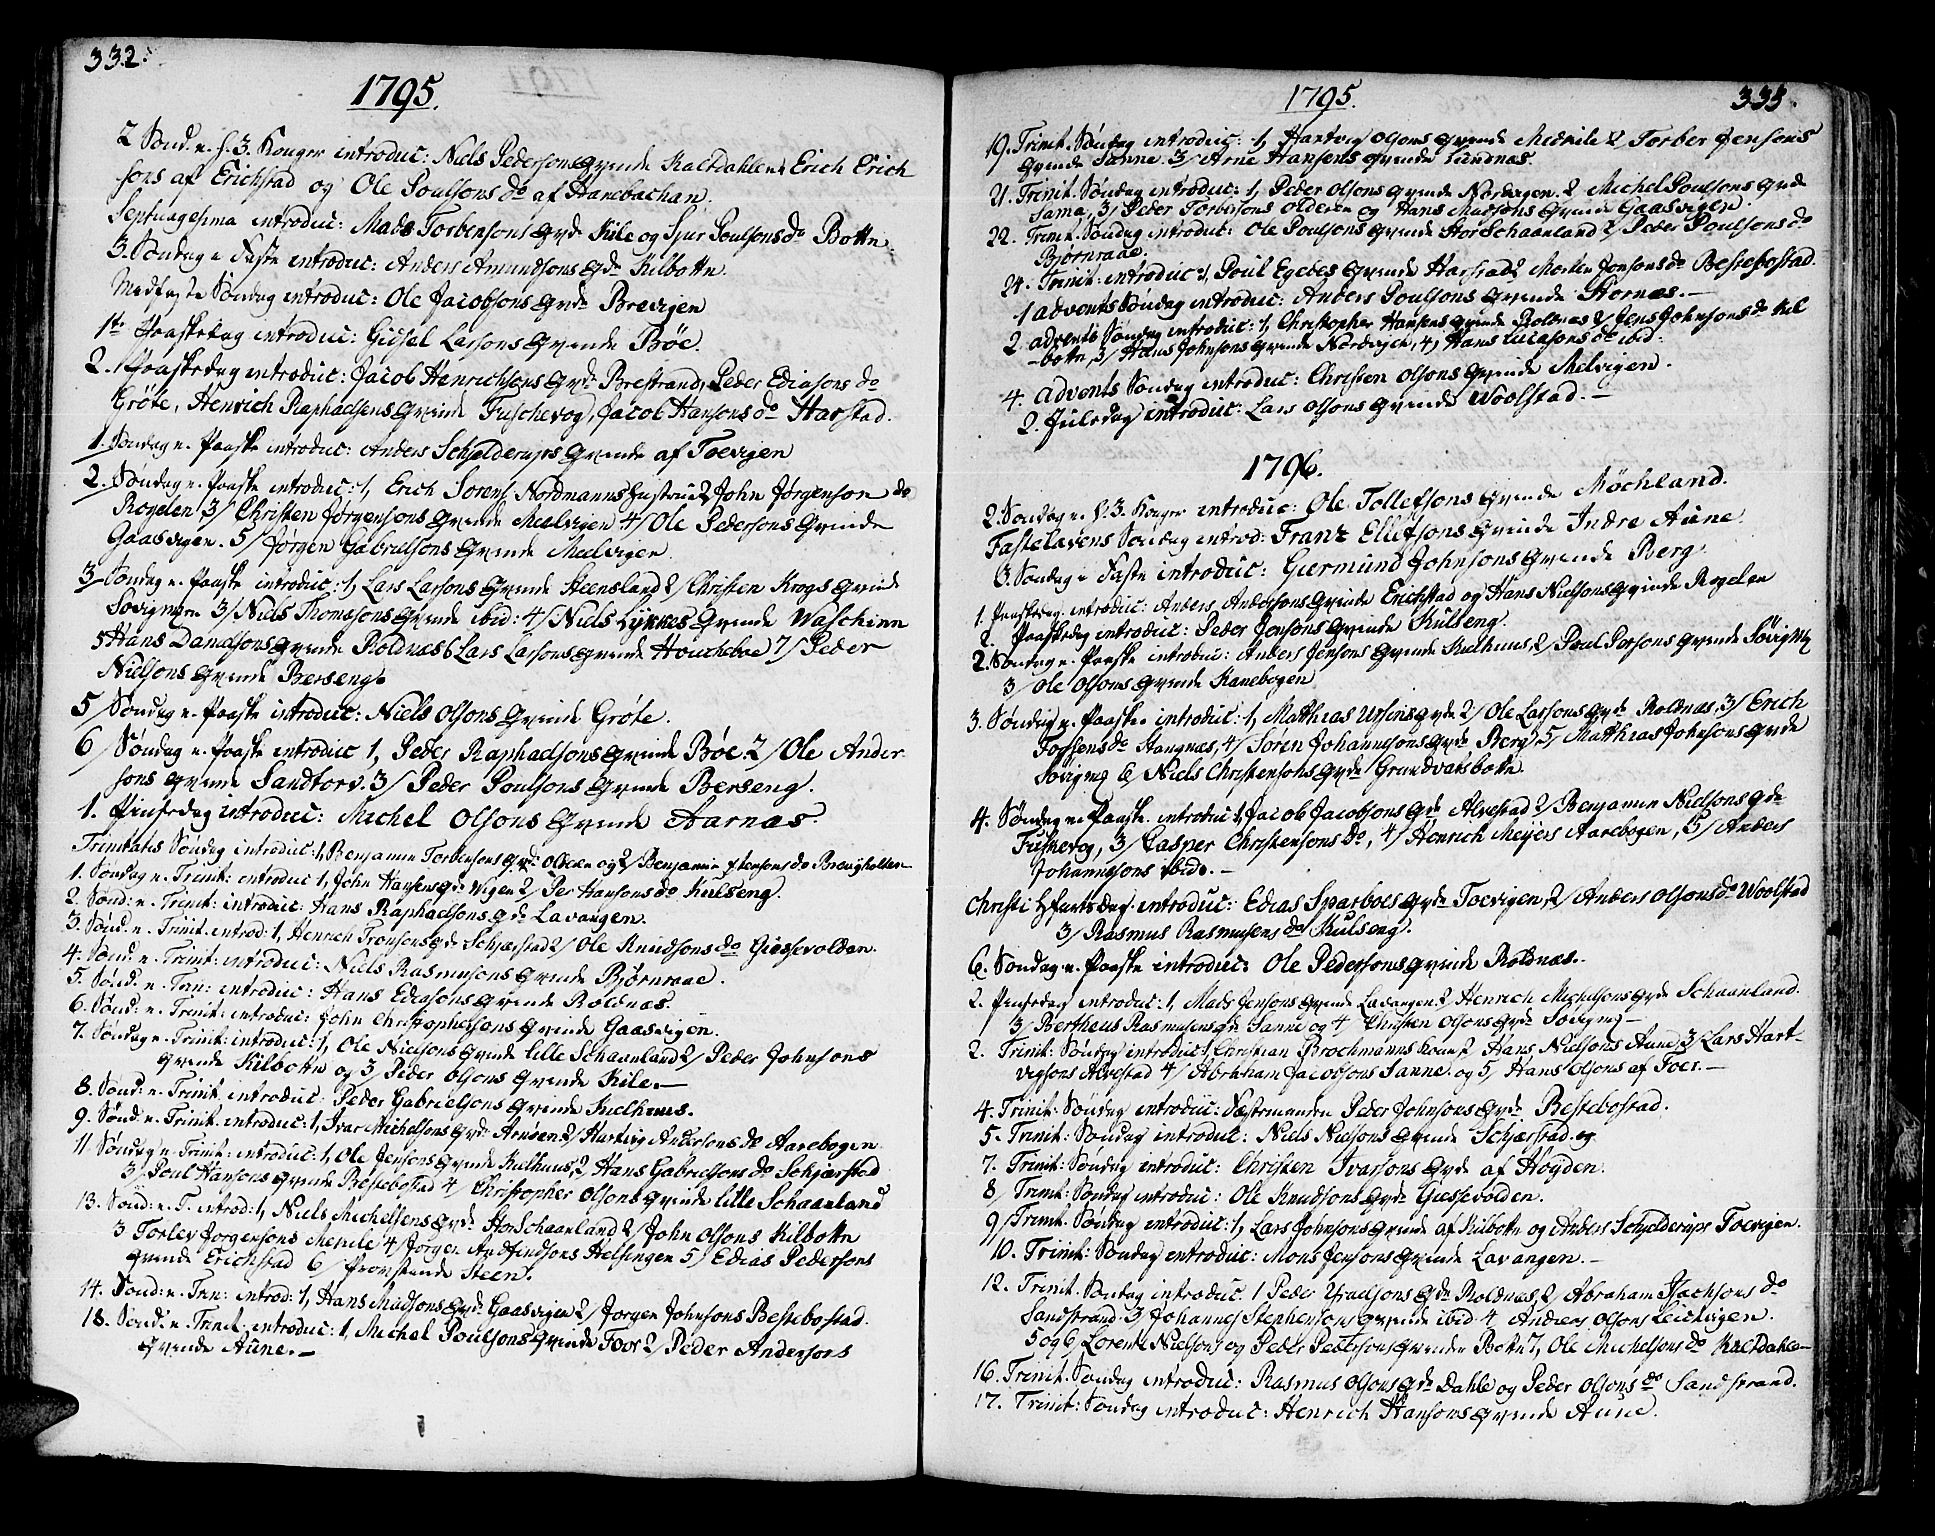 332.
1795.
2 Sønd. e. h. 3. Konger introduc: Niels Pedersons qvinde Kaltdahlen, Erich Erich
sons af Erichstad og Ole Poulsons do af Hanebachan.
Septuagesima introduc: Mads Torbensons qvd. Kile og Sjur Poulsons do Botten.
3. Søndag i Faste introduc: Anders Amundsons qvd. Kilbotten.
Medfaste Søndag introduc: Ole Jacobsons qvd. Brevigen
1te Paaskedag introduc: Gidsel Larsons qvinde Bøe.
2. Paaskedag introduc: Jacob Henrichsons qvd. Brestrand, Peder Ediasons do
Grøte, Henrich Raphaelsens qvinde Fuschevog, Jacob Hansons do Harstad.
1. Søndag e. Paaske introduc: Anders Schjelderups qvinde af Toevigen
2. Søndag e. Paaske introduc: 1, Erich Sørens. Nordmanns hustrue 2 John Jørgenson do
Rogelen 3/ Christen Jørgensons qvinde Melvigen 4/ Ole Pedersons qvinde
Gaasvigen. 5/ Jørgen Gabrielsons qvinde Melvigen.
3 Søndag e. Paaske introduc: 1, Lars Larsons qvinde Steensland 2/ Christen Krogs qvind
Søvigmoen 3/ Niels Thomasons qvinde ibid: 4/ Niels Lykkes qvinde Waschinn
5 Hans Danielsons qvinde Roldnæs 6 Lars Larsons qvinde Houcheboe 7/ Peder
Nielsons qvinde Berseng.
5/ Søndag e. Paaske introduc: Niels Olsons qvinde Grøte.
6/ Søndag e. Paaske introduc 1, Peder Raphaelsons qvinde Bøe. 2/ Ole Ander-
sons qvinde Sandtorv. 3/ Peder Poulsons qvinde Berseng.
1. Pinsedag introduc: Michel Olsons qvinde Aarnæs
Trinitatis Søndag introduc: 1, Benjamin Torbensons qvd. Olderen og 2/ Benjamin Estensons do Breigholten
1. Søndag e. Trinit: introduc 1, John Hansens qvd Vigen 2/ Per Hansons do Kulseng.
2. Sønd: e. Trinit: introduc: Hans Raphaelsons qvd. Lavangen.
3. Sønd. e. Trinit. introd: 1, Henrich Tronsons qvd. Schjærstad 2/ Ole Knudsons do Giessevolden.
4. Sønd. e. Trinit: introduc: Niels Rasmusons qvinde Bjørnraae.
5. Sønd. e. Trin: introduc: Hans Ediasons qvinde Roldnæs.
6. Sønd: e. Trinit: introduc: John Christophersons qvinde Gaasvigen.
7. Søndag e. Trinit: introduc: 1, Ole Nielsons qvinde lille Schaanland 2/ Peder Johnsons
qvinde Kilbotten og 3/ Peder Olsons qvinde Kile.—
8. Sønd: e. Trinit. introduc: Peder Gabrielsons qvinde Kielhuus.
9. Sønd: e. Trinit. introduc: 1, Ivar Michelsons qvd. Arnøen 2/ Hartvig Andersons do Aarebogen.
11. Søndag e. Trinit: introduc: 1, Ole Jensons qvinde Kielhuus, 2 Hans Gabrielsons do Schjærstad
3/ Poul Hansons qvinde Bestebostad 4/ Christopher Olsons qvinde lille Schaanland
13. Sønd: e. T. introd: 1, Niels Michelsens qvd. Stor Schaanland 2/ John Olsons Kilbotten
3 Torlev Jørgensons Merile 4/ Jørgen Andfindsons Helsingen 5/ Edias Pedersons
qvinde Erichstad 6/ Provstinde Steen.
14. Sønd: e. Trin: introd: 1, Hans Madsons qvd. Gaasvigen 2/ Jørgen Johnsons Bestebostad.
18. Sønd. e. Trinit. introduc: 1, Michel Poulsons qvinde Foor 2/ Peder Andersons
qvinde Aune.—
1795.
333.
19. Trinit. Søndag introduc: 1, Hartvig Olsons qvinde Medkile 2/ Torber Jensons
qvinde Sanne. 3/ Arne Hansens qvinde Lundnæs.
21. Trinit. Søndag introduc: 1, Peder Olsons qvinde Nordvigen. 2 Michel Poulsons qvd
Sama, 3/ Peder Torbersons Olderen og Hans Madsons qvinde Gaasvigen.
22. Trinit. Søndag introduc: Ole Poulsons qvinde Stor Schaanland 2/ Peder Poulsons do
Bjørnraae.
24. Trinit: introduc 1, Poul Egebes qvinde Harstad 2 Morten Jonsons do Bestebostad.
1 Advents Søndag introduc: Anders Poulsons qvinde Stornæs.—
2. Advents Søndag introduc: 1, Christopher Hansens qvinde Roldnæs 2/ Jens Johnsons do Kil
-botten, 3/ Hans Johnsons qvinde Nordvigen, 4, Hans Lucasons do ibid:
4. Advents Søndag introduc: Christen Olsons qvinde Melvigen.
2. Juledag introduc: Lars Olsons qvinde Woolstad.—
1796.
2. Søndag e. h. 3. Konger introduc: Ole Tollefsons qvinde Møchland.
Fastelavens Søndag introd: Franz Ellefsons qvinde Indre Aune.
3. Søndag i Faste introduc: Giermund Johnsons qvinde Berg.
1. Paaskedag introduc: Anders Andersons qvinde Erichstad og Hans Nielsons qvinde Rogelen
2. Paaskedag introduc: Peder Jensons qvinde Kulseng.
2. Søndag e. Paaske introduc: Anders Jensons qvinde Kielhuus, 2/ Poul Persons qvinde Søvigmoe
3/ Ole Olsons qvinde Kanebogen
3. Søndag e. Paaske introduc: 1, Matthias Ursins qvde 2/ Ole Larsons qvd. Roldnæs, 3/ Erich
Torsens do Stangnæs, 4/ Søren Johannesons qvd. Berg, 5/ Matthias Johnsons qvde
Søvigmoe 6/ Niels Christensons qvd. Grundvatsbotten.
4. Søndag e. Paaske. introduc 1, Jacob Jacobsons qvd. Alvestad 2/ Benjamin Nielsons qvde
Fuskevog, 3/ Casper Christensons do, 4/ Henrich Meyers Aarebogen, 5/ Anders
Johannesons ibid.—
Christi Hfarts Dag introduc: Edias Sparboes qvd. Toevigen, 2/ Anders Olsons do Woolstad
3/ Rasmus Rasmusens do Kulseng.
6. Søndag e. Paaske introduc: Ole Pedersons qvinde Roldnæs.
2. Pinsedag introduc: 1, Mads Jensons qvinde Lavangen. 2 Henrich Michelsons qvde Schaanland.
3/ Bertheus Rasmusens qvd. Sanne og 4/ Christen Olsons qvd. Søvigmoe—
2. Trinit: Søndag introduc 1, Christian Brochmanns Kone 2 Hans Nielsons Aune, 3 Lars Hart-
vigsons Alvestad 4/ Abraham Jacobsons Sanne. og 5/ Hans Olsons af Foer.—
4. Trinit: Søndag introduc: Væstmanden Peder Johnsons qvd. Bestebostad.
5. Trinit: Søndag introduc: Niels Nielsons qvinde Schjærstad. og
7. Trinit: Søndag introduc: Christen Ivarsons qvde af Høyden.
8/ Trinit: Søndag introduc: Ole Knudsons qvd. Giessevolden.
9/ Trinit. Søndag introduc: 1, Lars Johnsons qvinde af Kilbotten og Anders Schjelderups Toevigen.
10. Trinit: Søndag introduc: Mons Jensons qvinde Lavangen.—
12. Trinit. Søndag introduc. 1 Peder Iraelsons qvd. Roldnæs, 2/ Abraham Isachsons do
Sandstrand 3 Johannes Stephensons qvinde ibid 4 Anders Olsons Leichvigen.
5 og 6/ Lorentz Nielsons og Peder Pedersons qvinder Botten 7, Ole Michelsons do Kaltdahlen—
16. Trinit. Søndag introduc: Rasmus Olsons qvd. Dahle og Peder Olsons do Sandstrand.
17. Trinit: Søndag introduc: Henrich Hansons qvinde Aune.